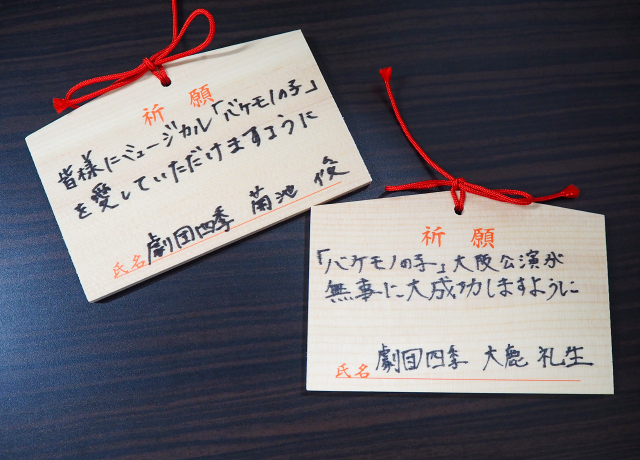 祈願
皆様にミュージカル「バケモノの子」
を愛していただけますように
氏名 劇団四季 菊池 俊
祈願
「バケモノの子」大阪公演が
無事に大成功しますように
氏名 劇団四季 大鹿 礼生